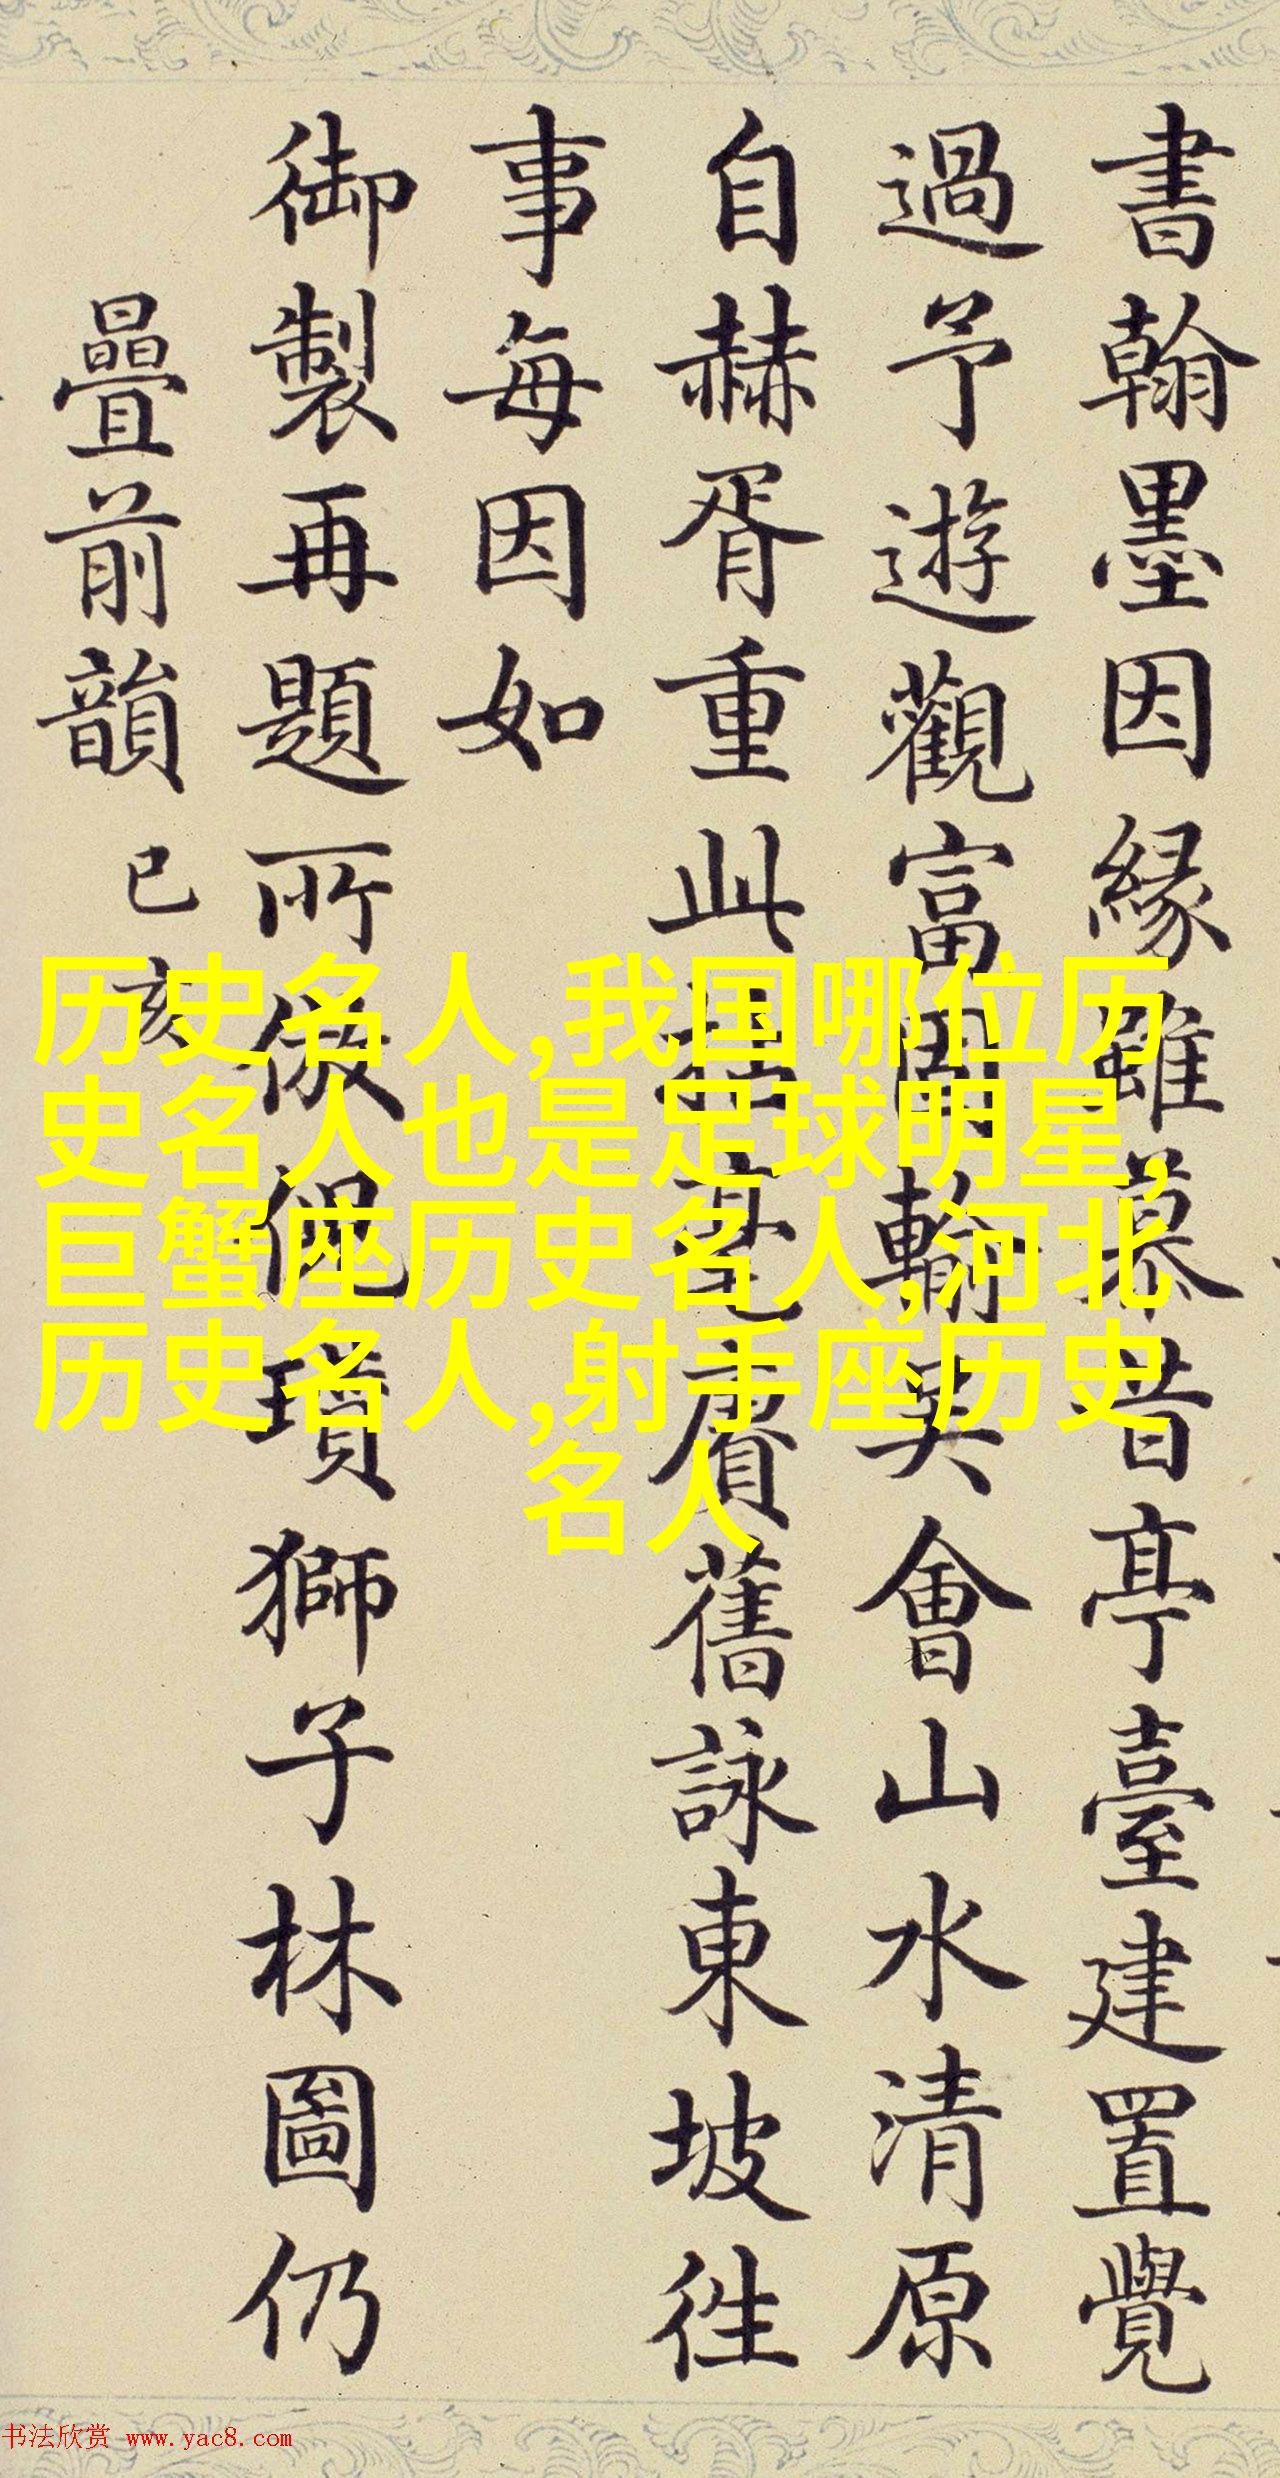 書翰墨因緣雖慕昔亭臺建置覺
過予遊觀富閒輸芙會山水清原
自赫胥重此擅毫賡舊詠東坡徃
事每因如
御製再題所倣倪瓚獅子林圖仍
疊前韻 已亥
历史名人,我国哪位历
史名人也是足球明星,
巨蟹座历史名人,河北
历史名人,射手座历史
名人
书法欣赏 www.yac8.com